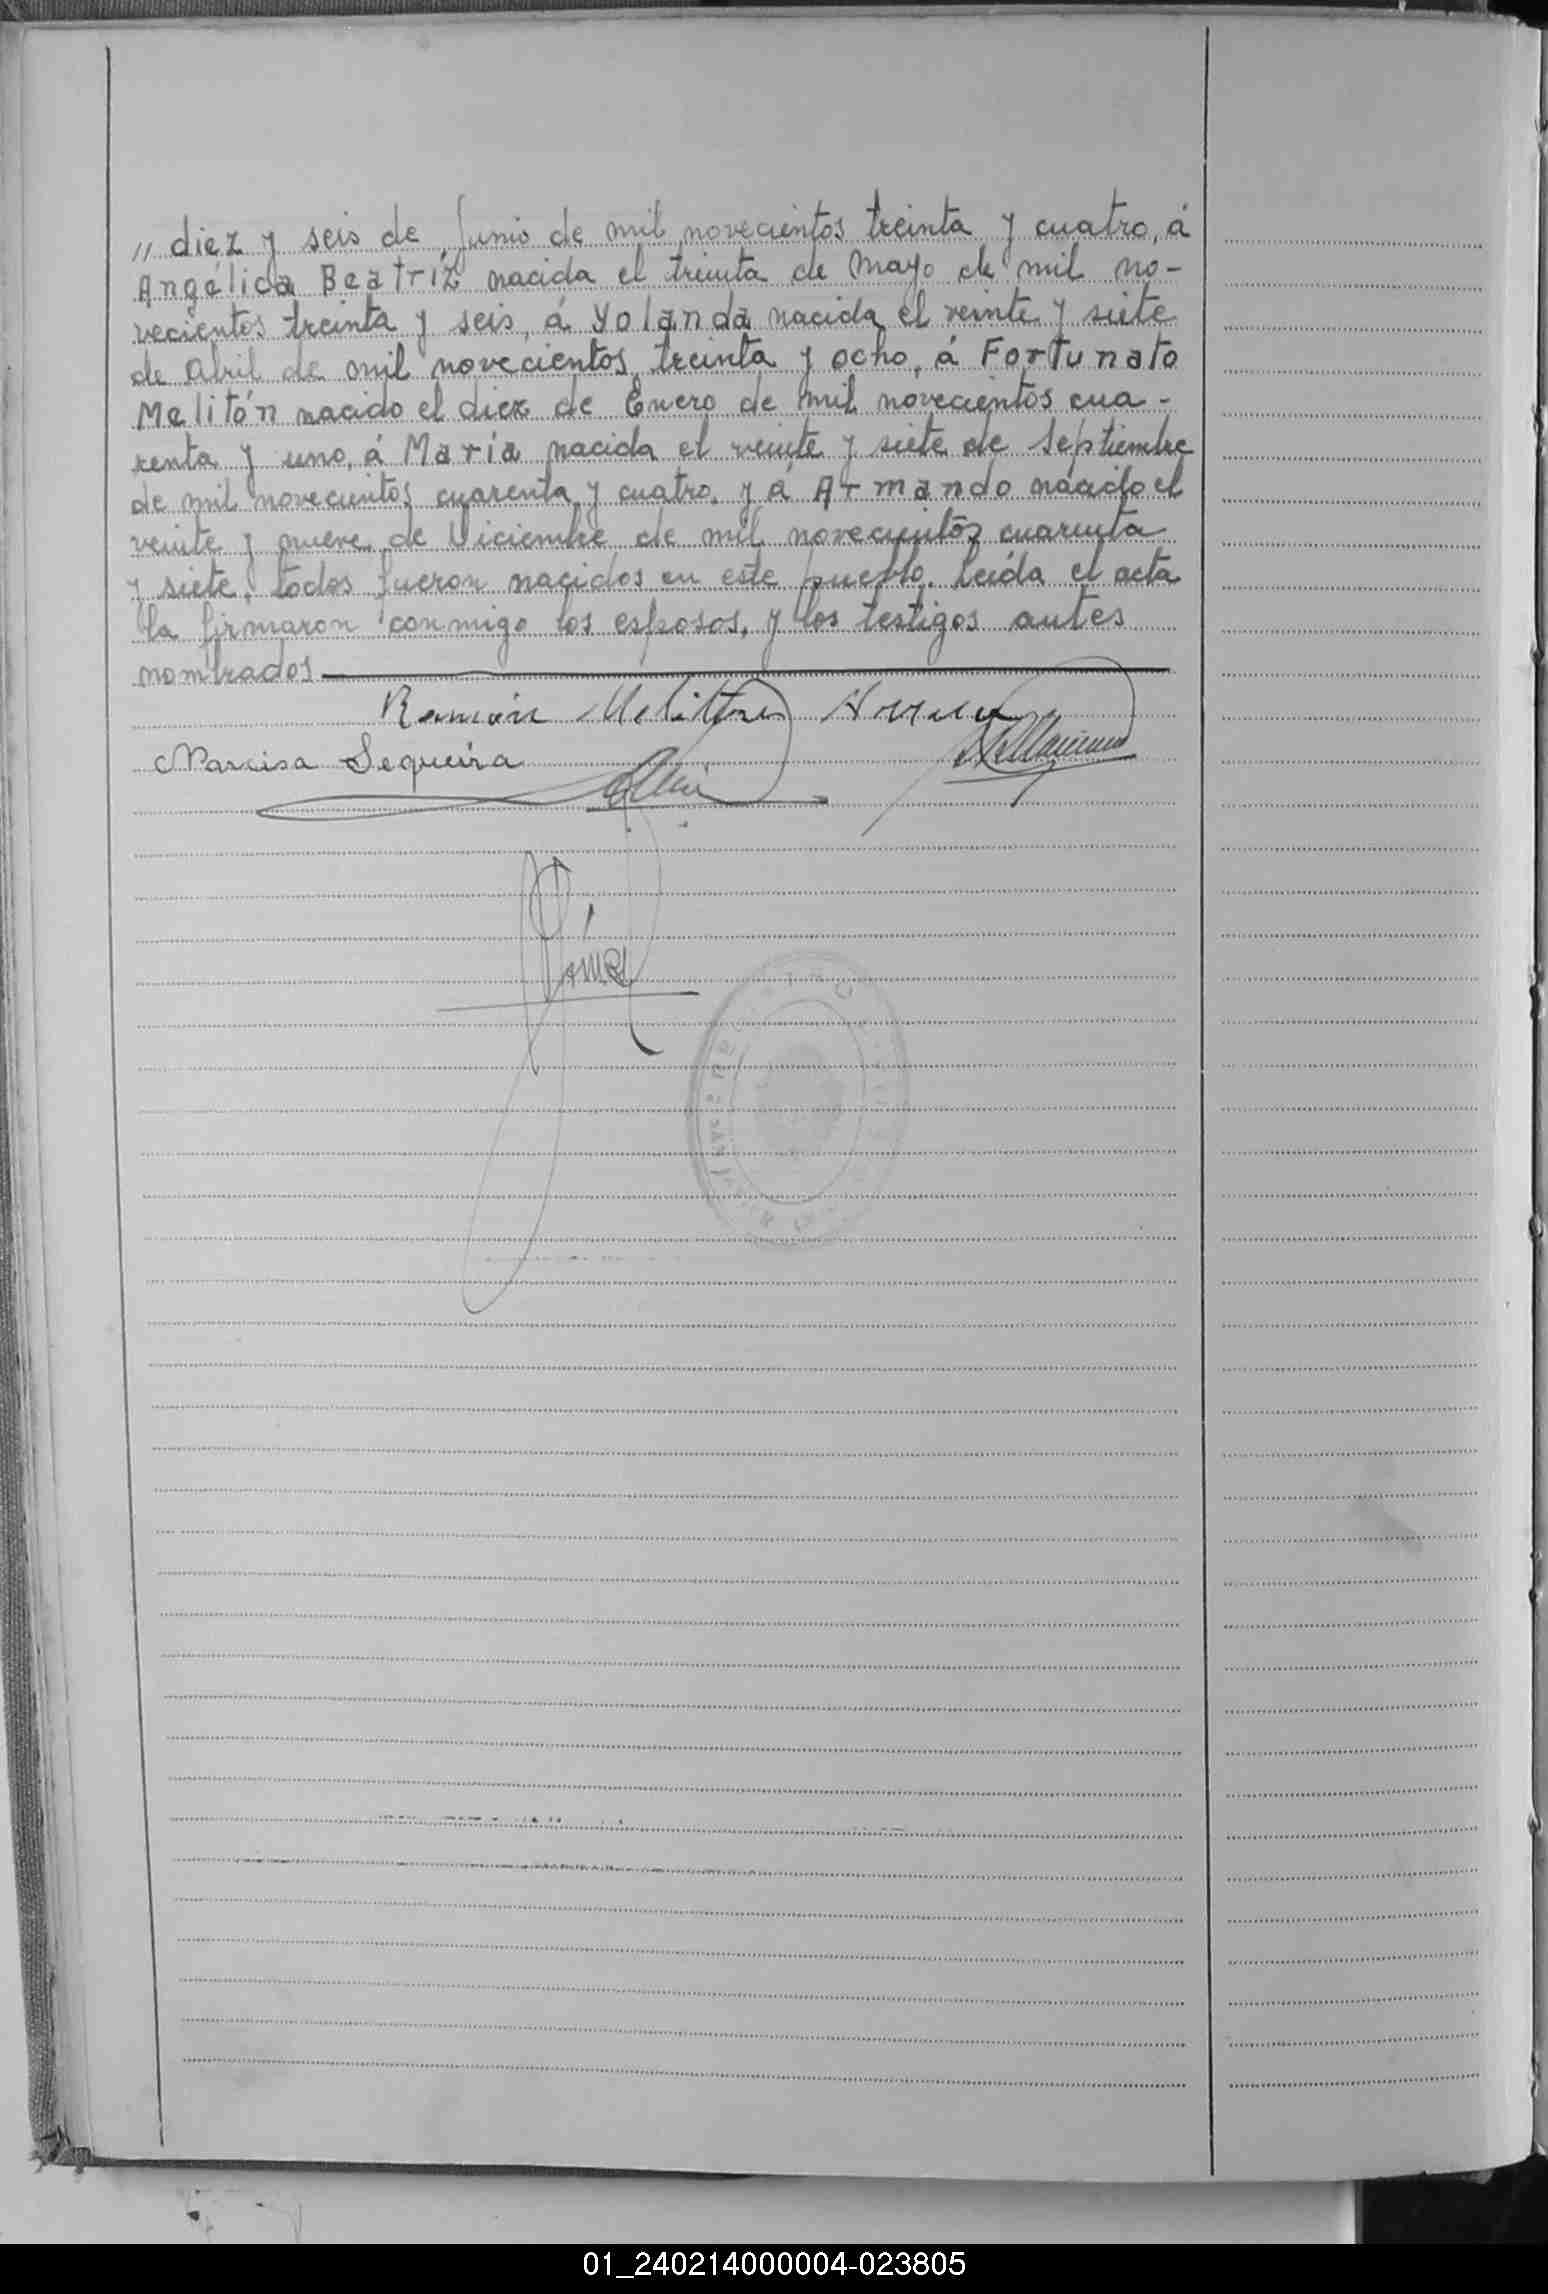 ,, diez y seis de Junio de mil novecientos treinta y cuatro, á
Angélica Beatríz nacida el treinta de Mayo de mil no-
vecientos treinta y seis, á Yolanda nacida el veinte y siete
de Abril de mil novecientos treinta y ocho, á Fortunato
Melitón nacido el diez de Enero de mil novecientos cua-
renta y uno, á María nacida el veinte y siete de Septiembre
de mil novecientos cuarenta y cuatro, y á Armando nacido el
veinte y nueve de Diciembre de mil novecientos cuarenta
y siete, todos fueron nacidos en este pueblo. Leída el acta
la firmaron conmigo los esposos, y los testigos antes
nombrados
Ramón
Narcisa Sequeira
01_240214000004-023805